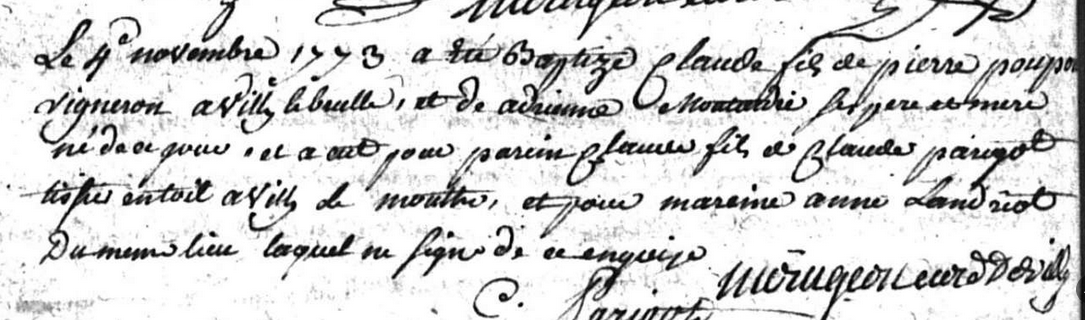 Le 4e novembre 1773 a été Baptizé Claude fils de pierre poupon
vigneron a Villy le brulle, et de adrienne ses pere et mere
né de ce jour, et a eut pour parein Claude fils de Claude parigot
tissier en toil a Villy le mouthe, et pour mareine anne Landriot
Du meme lieu laquel ne signe de ce enquise
C. Parigot Merugeon curé De villy